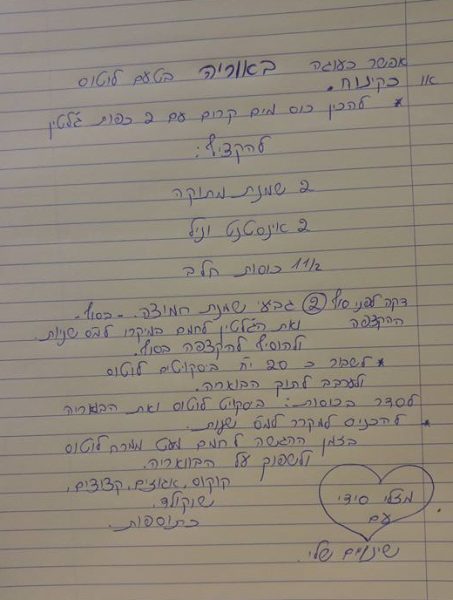 אפשר כעוגה באווריה בטעם לוטוס
או כקינוח.
* להכין כוס מים קרים עם 2 כפות ג'לטין
להקציף:
2 שמנת מתוקה
2 אינסטנט וניל
1 1/2 כוסות חלב
דקה לפני סוף 2 גבעי שמנת חמוצה. - בסוף
ההקצפה ואת הג'לטין לחמם במיקרו לכמה שניות
ולהוסיף להקצפה בסוף.
* לשבור כ 20 יח' ביסקויטים לוטוס
ולערבב לתוך הבווריה.
לסדר בכוסות: ביסקויט לוטוס ואת הבוואריה
* להכניס למקרר לכמה שעות.
בזמן ההגשה לחמם מעט ממרח לוטוס
ולשפוך על הבוואריה.
קוקוס, אגוזים, קצוצים,
שוקולד.
כתוספות.
מצלי סידי
עם
שינויים שלי.